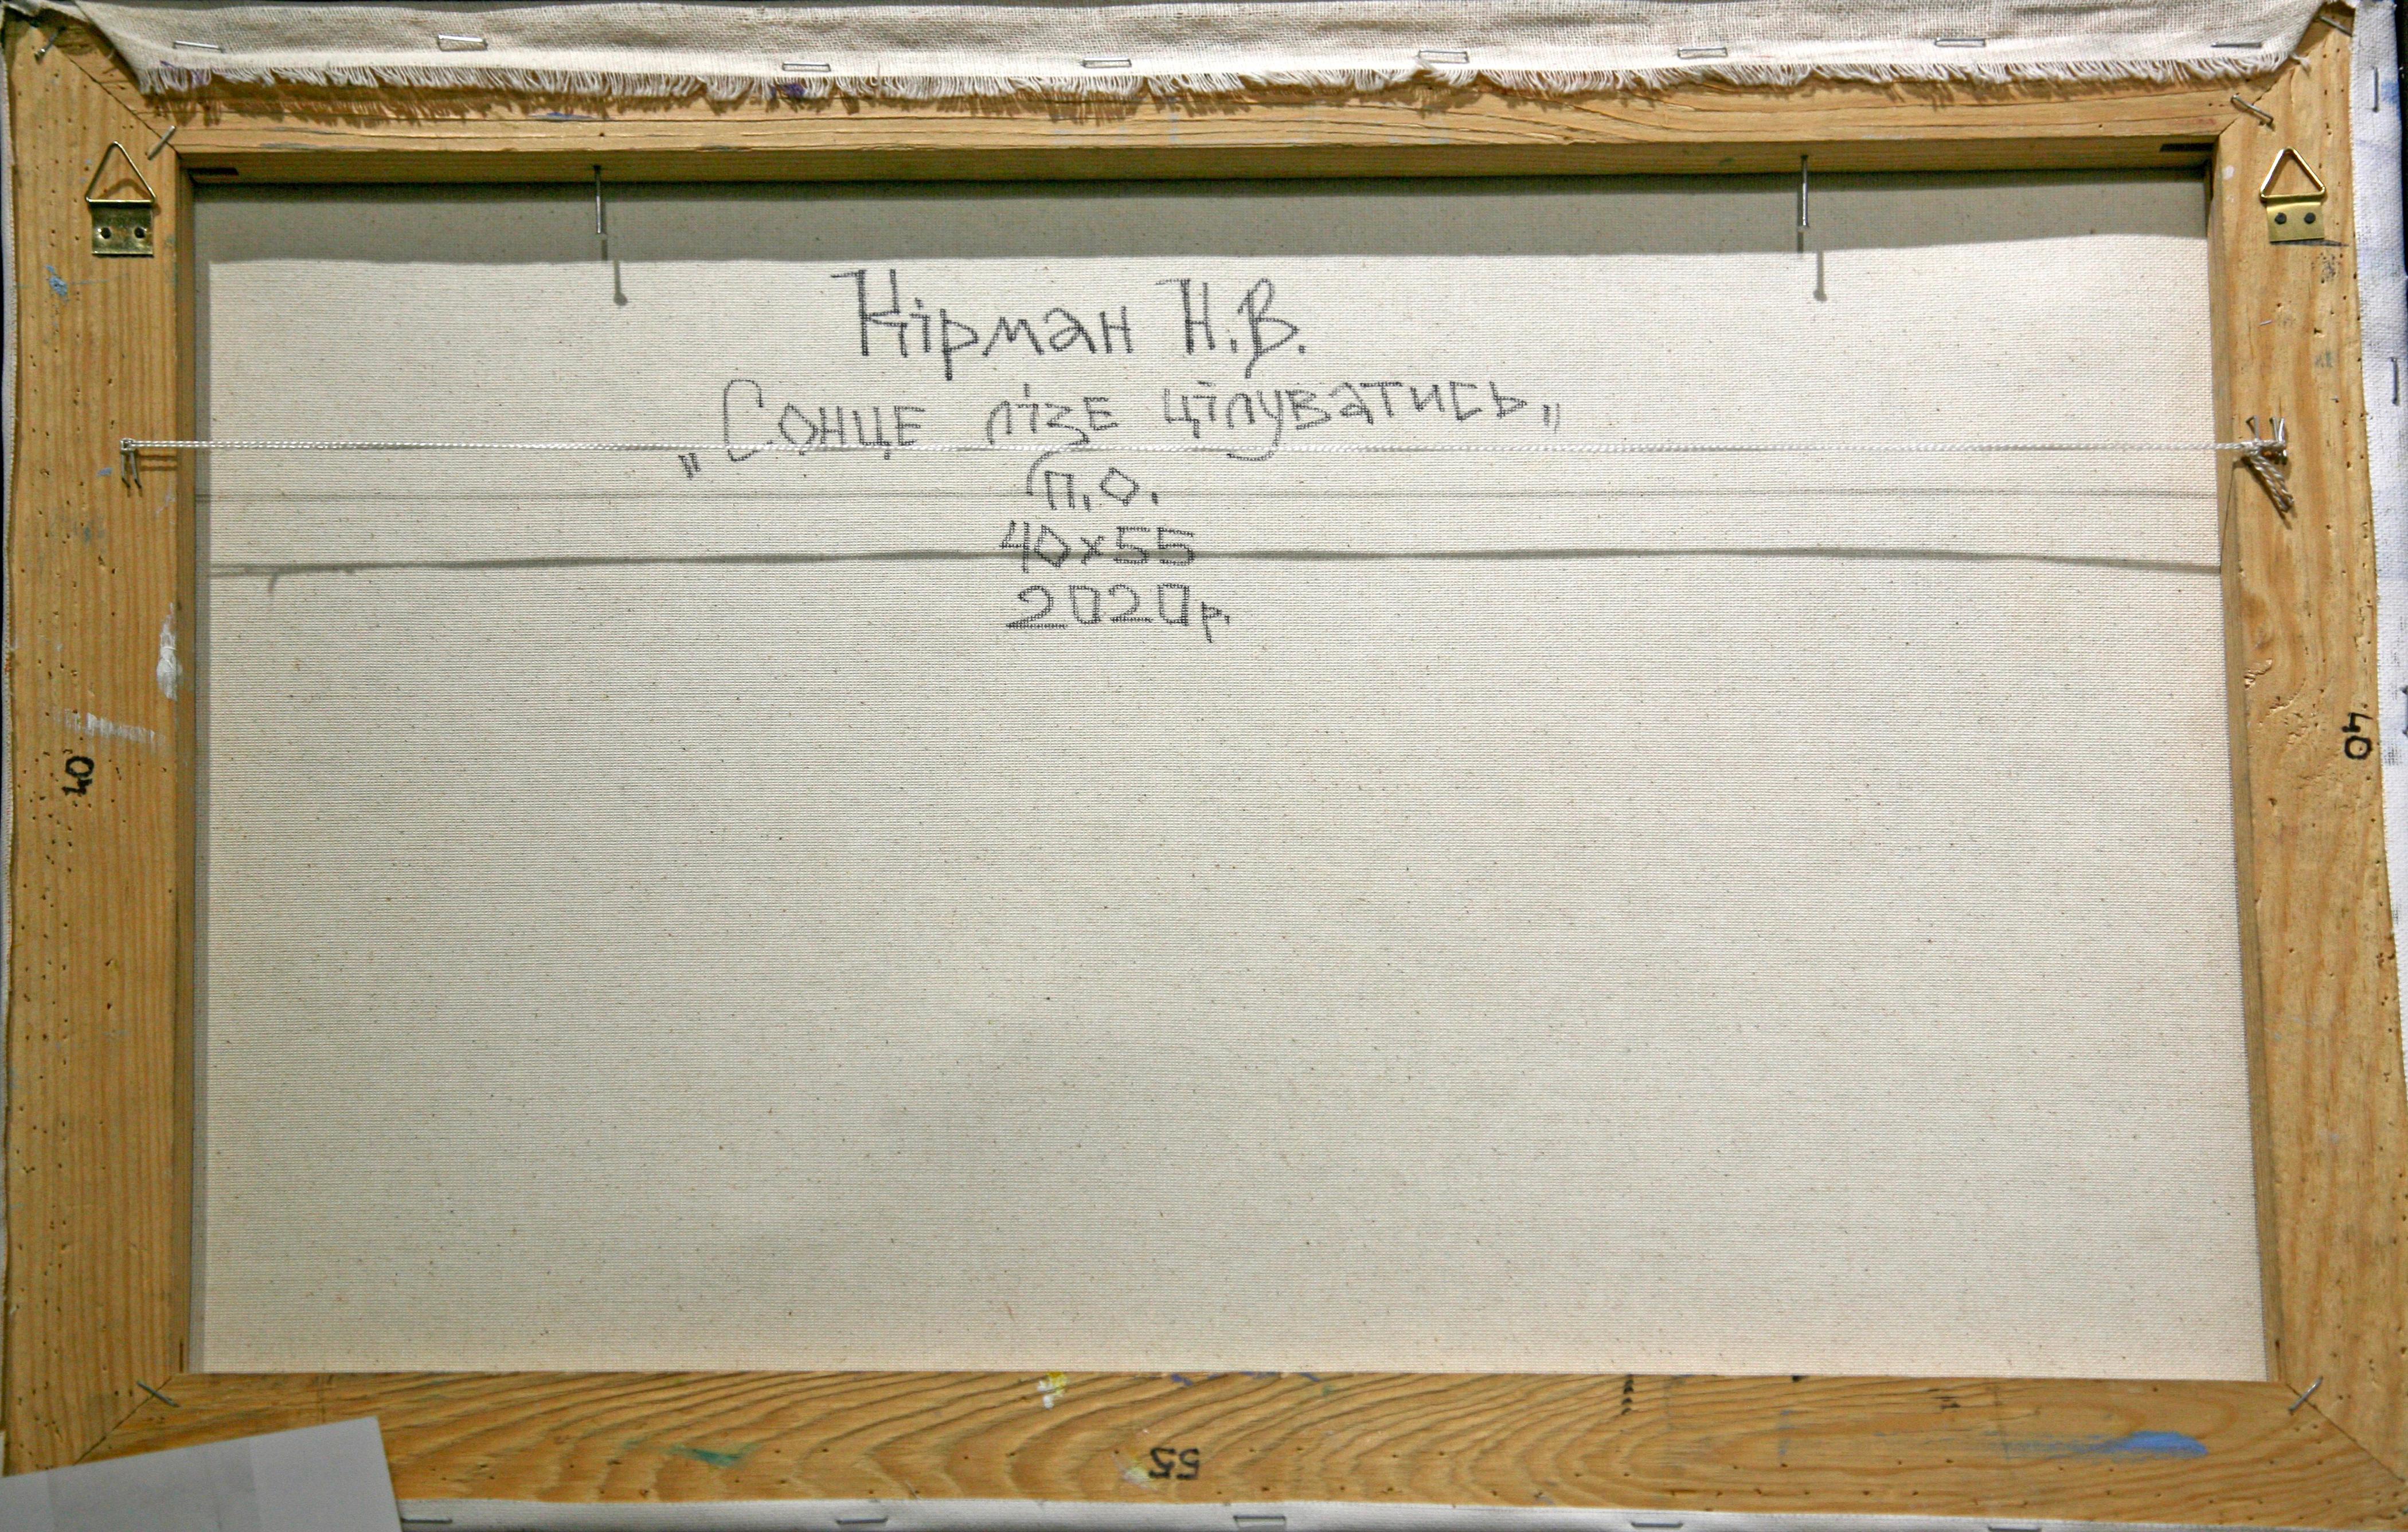 Кірман Н.В.
„Сонце лізе цілуватись„
п.о.
40x55
2020р.
40
40
55